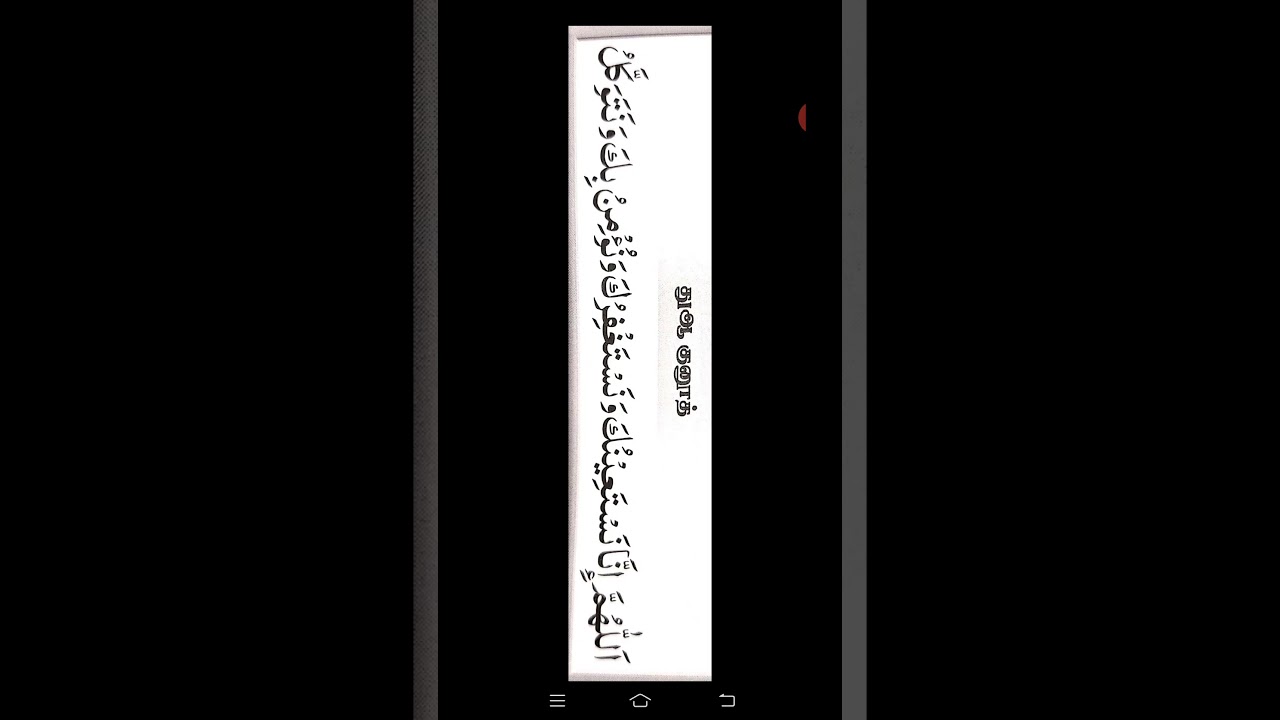 துஆ குனூத்
اَللّٰهُمَّ اِنَّا نَسْتَعِيْنُكَ وَنَسْتَغْفِرُكَ وَنُؤْمِنُ بِكَ وَنَتَوَكَّلُ